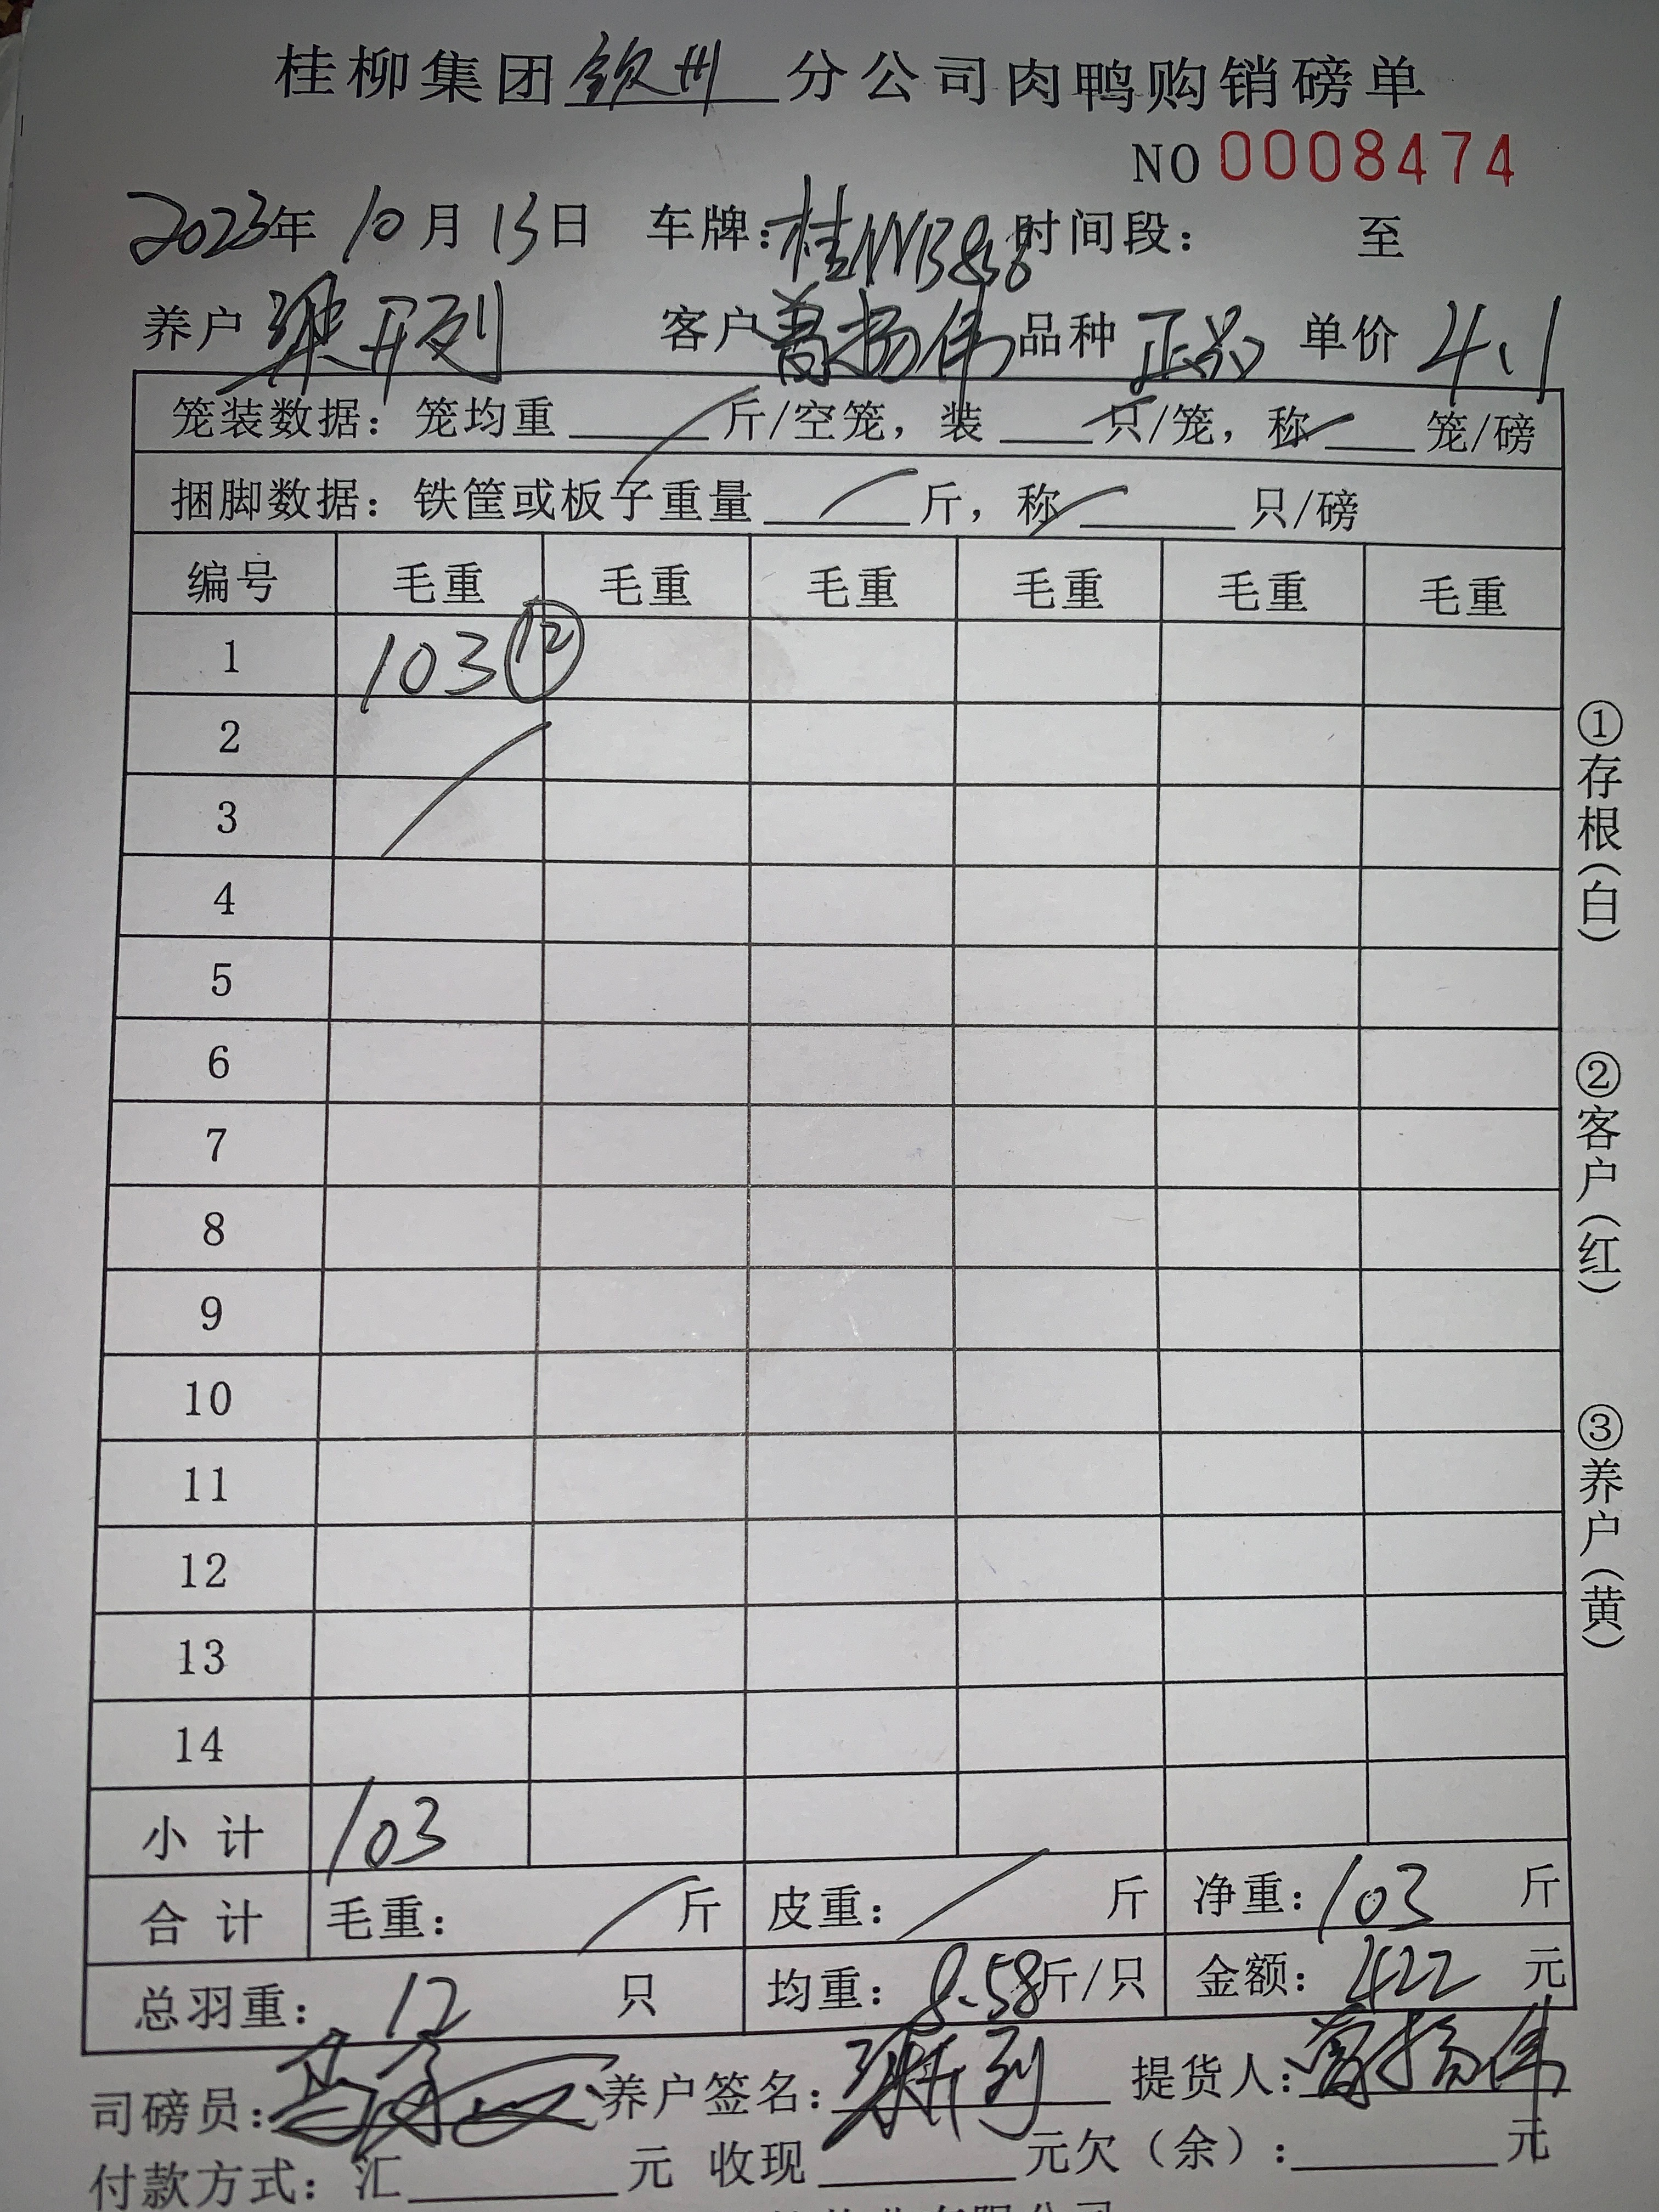 桂柳集团钦州分公司肉鸭购销磅单
NO 0008474
2023年 10月 13日 车牌: 桂 时间段: 至
养户 梁开列 客户 曾扬伟 品种 正品 单价 4.1
笼装数据: 笼均重 斤/空笼, 装 只/笼, 称 笼/磅
捆脚数据: 铁筐或板子重量 斤, 称 只/磅
编号 毛重 毛重 毛重 毛重 毛重 毛重
1 103 ⑫
2
3
4
5
6
7
8
9
10
11
12
13
14
小 计 103
合 计 毛重: 斤 皮重: 斤 净重: 103 斤
总羽重: 12 只 均重: 8.58斤/只 金额: 422 元
司磅员: 养户签名: 梁开列 提货人: 曾扬伟
付款方式: 汇 元 收现 元欠（余）: 元
有限公司
①存根(白)
②客户(红)
③养户(黄)